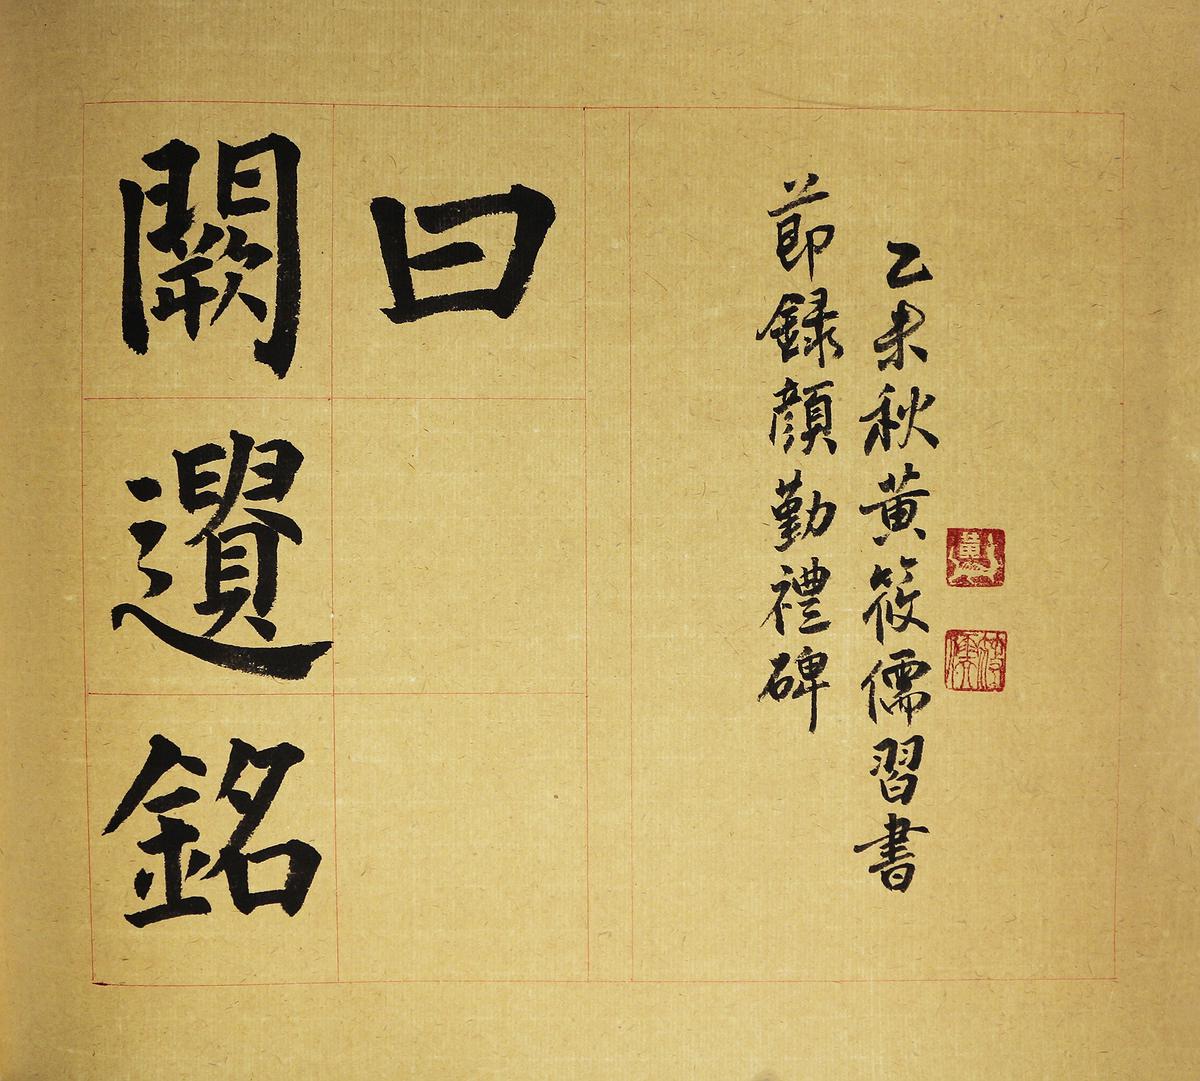 闕遺銘
曰
莭録顔勤禮碑
乙未秋黄筱儒習書
筱儒